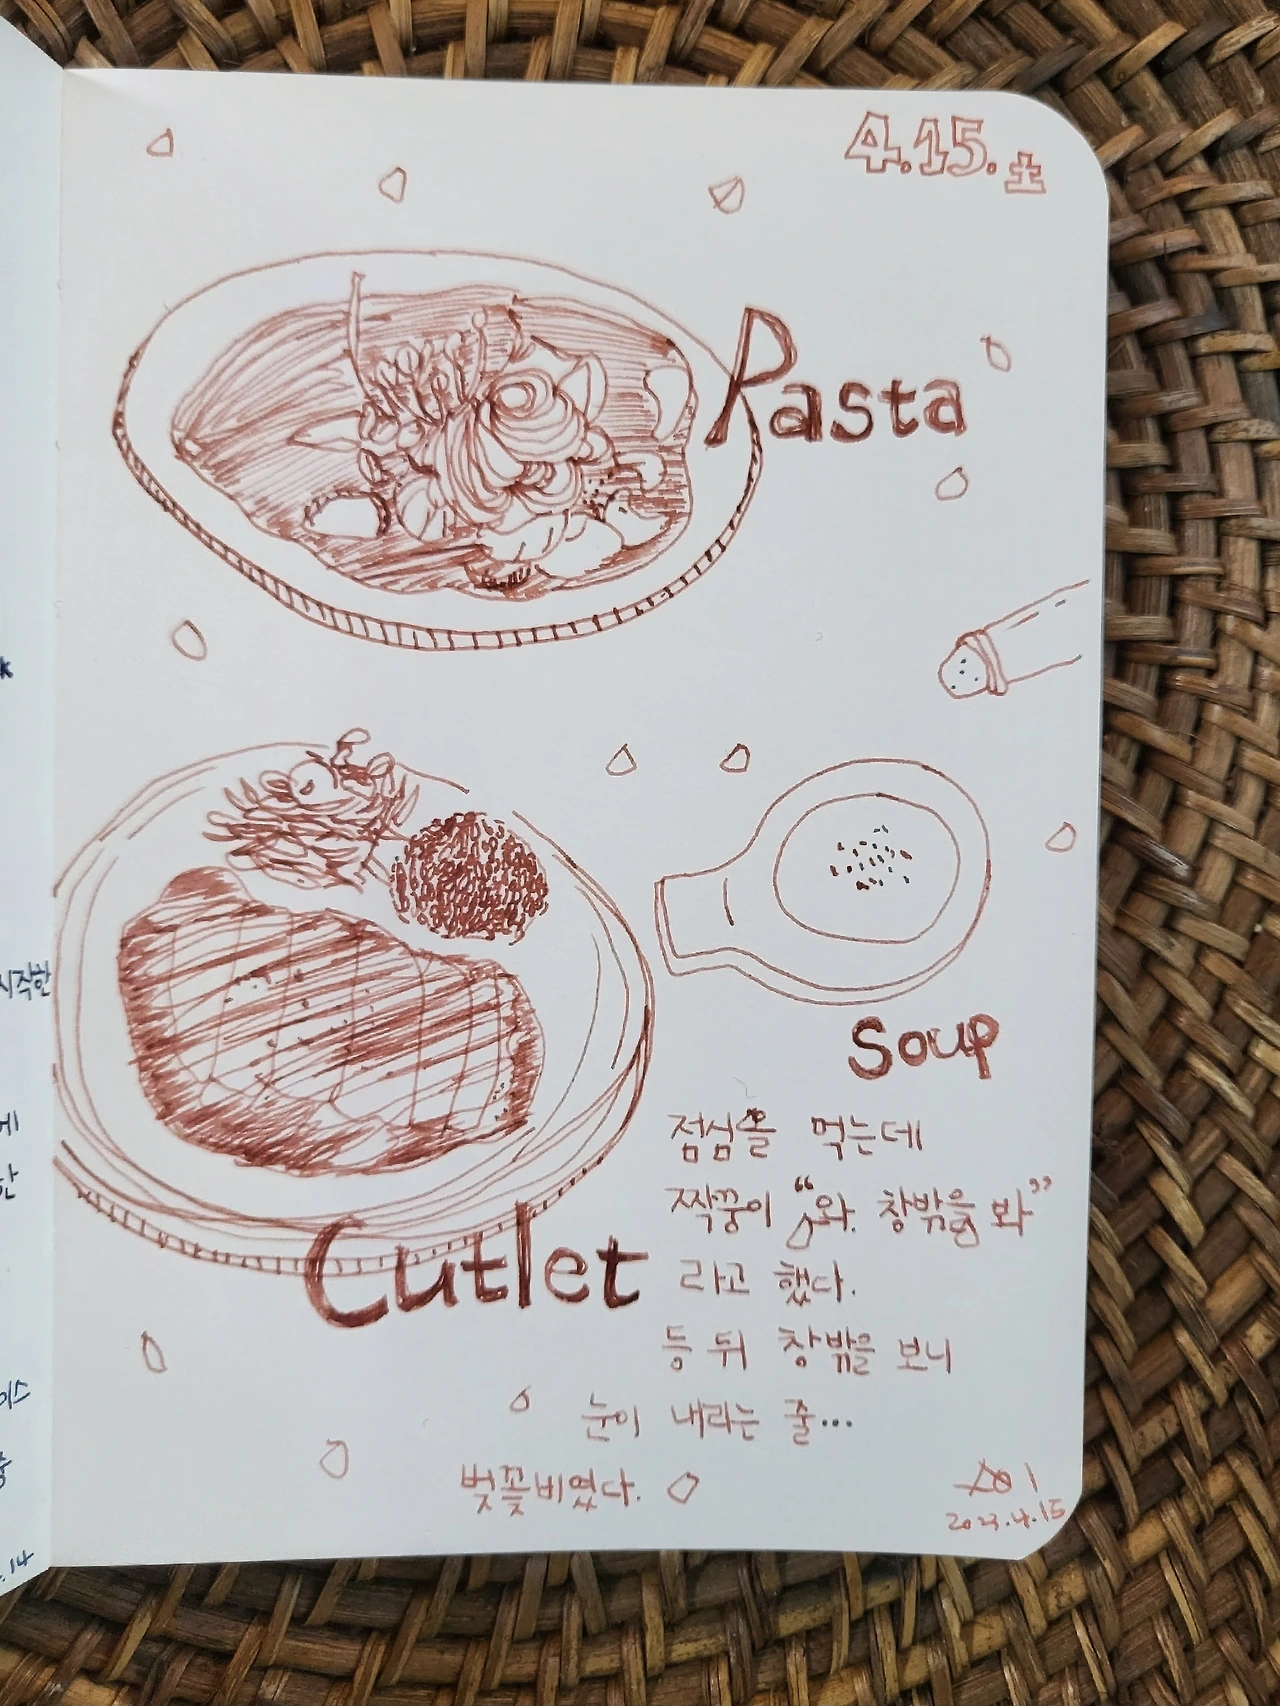 4.15.土
Pasta
Soup
Cutlet
점심을 먹는데
짝꿍이 “와. 창밖을 봐”
라고 했다.
등 뒤 창밖을 보니
눈이 내리는 줄...
벚꽃비였다.
2023.4.15
k
시작한
게
한
이스
.14